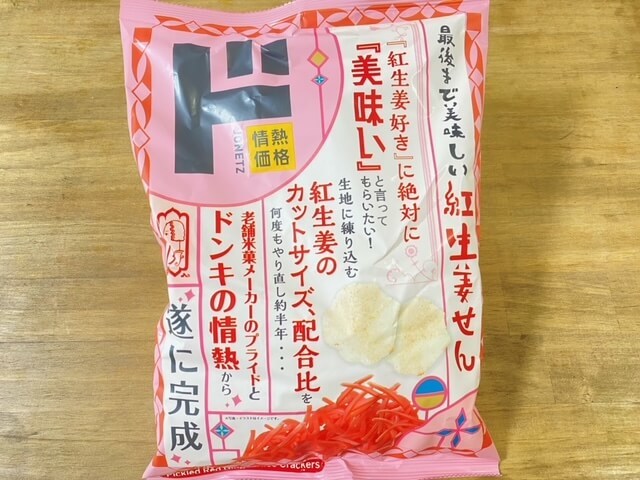 最後まで美味しい紅生姜せん
『紅生姜好き』に絶対に
『美味い』
と言って
もらいたい！
生地に練り込む
紅生姜の
カットサイズ、配合比を
何度もやり直し約半年・・・
老舗米菓メーカーのプライドと
ドンキの情熱から
遂に完成
ド
JONETZ
情熱
価格
Pickled Red Crackers